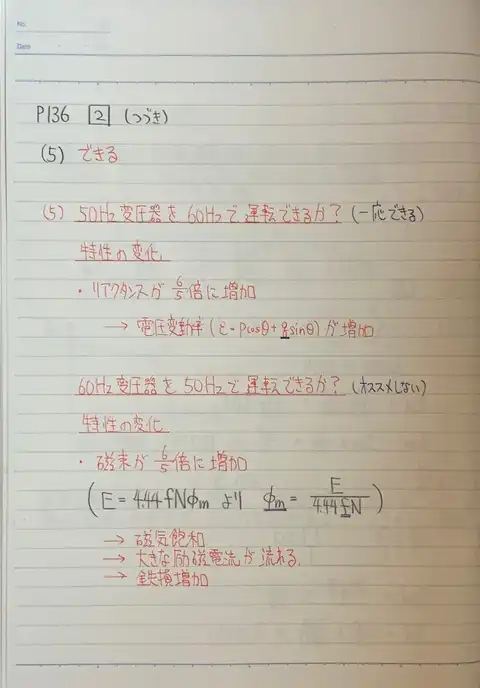 No.
Date
P136 2 (つづき)
(5) できる
(5) 50Hz変圧器を60Hzで運転できるか? (一応できる)
特性の変化
・リアクタンスが 6/5 倍に増加
→ 電圧変動率 (ε = pcosθ + qsinθ) が増加
60Hz変圧器を50Hzで運転できるか? (オススメしない)
特性の変化
・磁束が 6/5 倍に増加
(E = 4.44fNφm より φm = E/4.44fN)
→ 磁気飽和
→ 大きな励磁電流が流れる
→ 鉄損増加